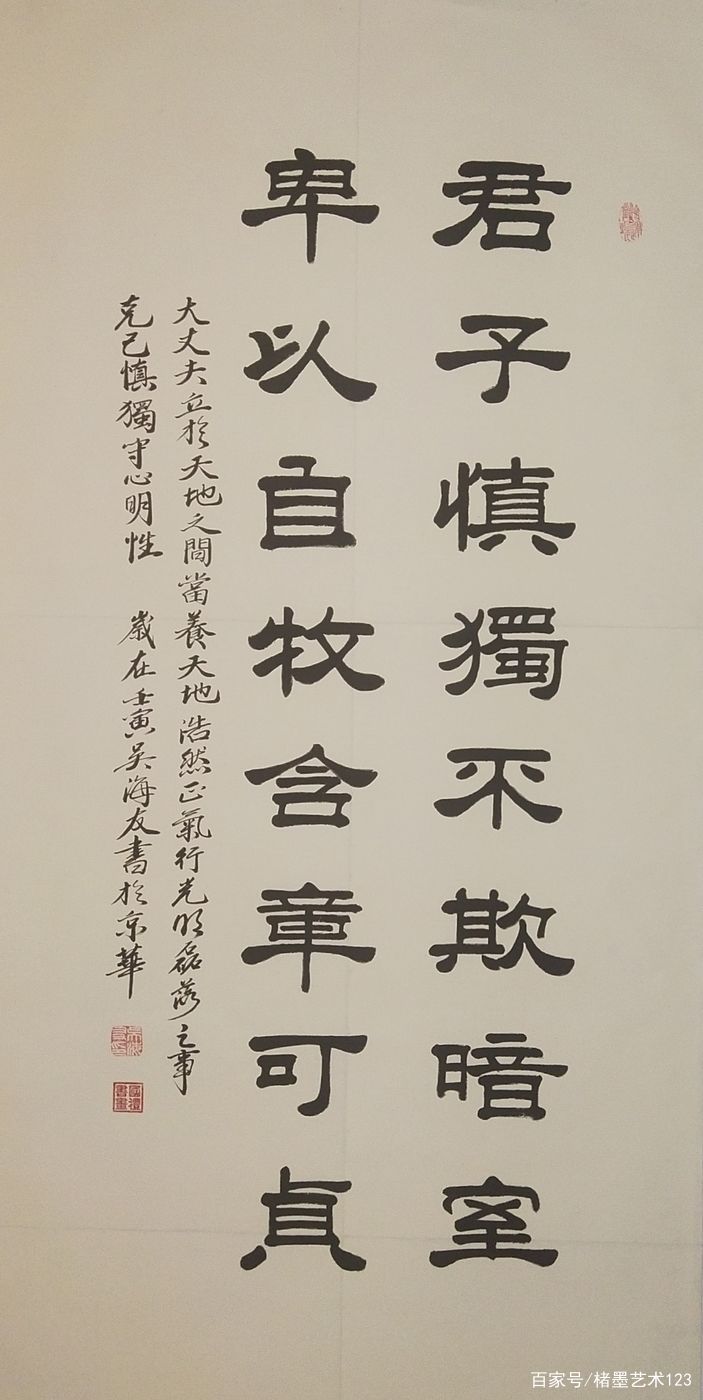 君子慎獨不欺暗室
卑以自牧含章可貞
大丈夫立於天地之間當養天地浩然正氣行光明磊落之事
克己慎獨守心明性 歲在壬寅吳海友書於京華
國禮書畫
百家号/楮墨艺术123